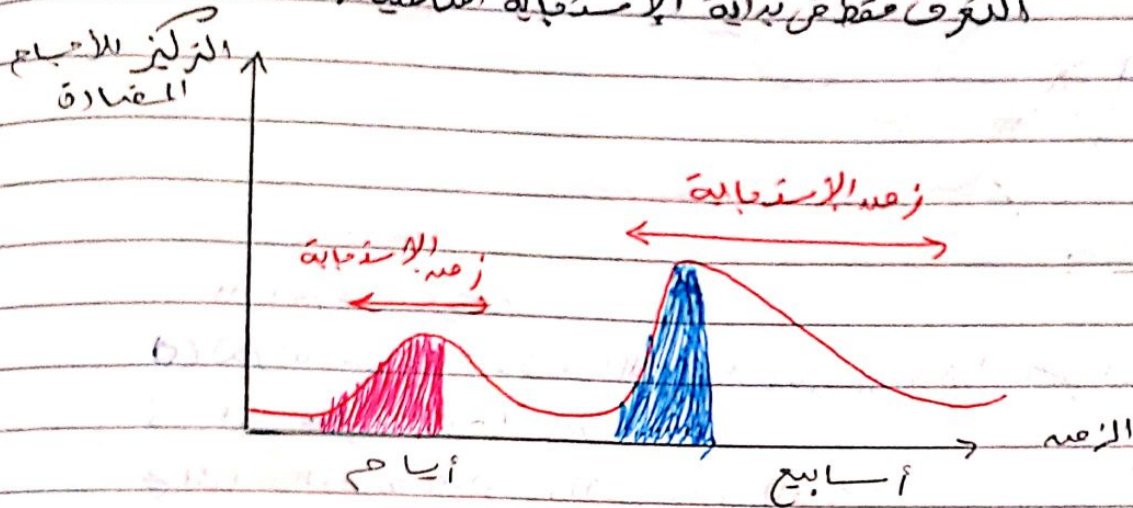 التعرف فقط من بداية الاستجابة المناعية.
التركيز للأجسام
المضادة
زمن الإستجابة
زمن الإستجابة
الزمن
أيام
أسابيع